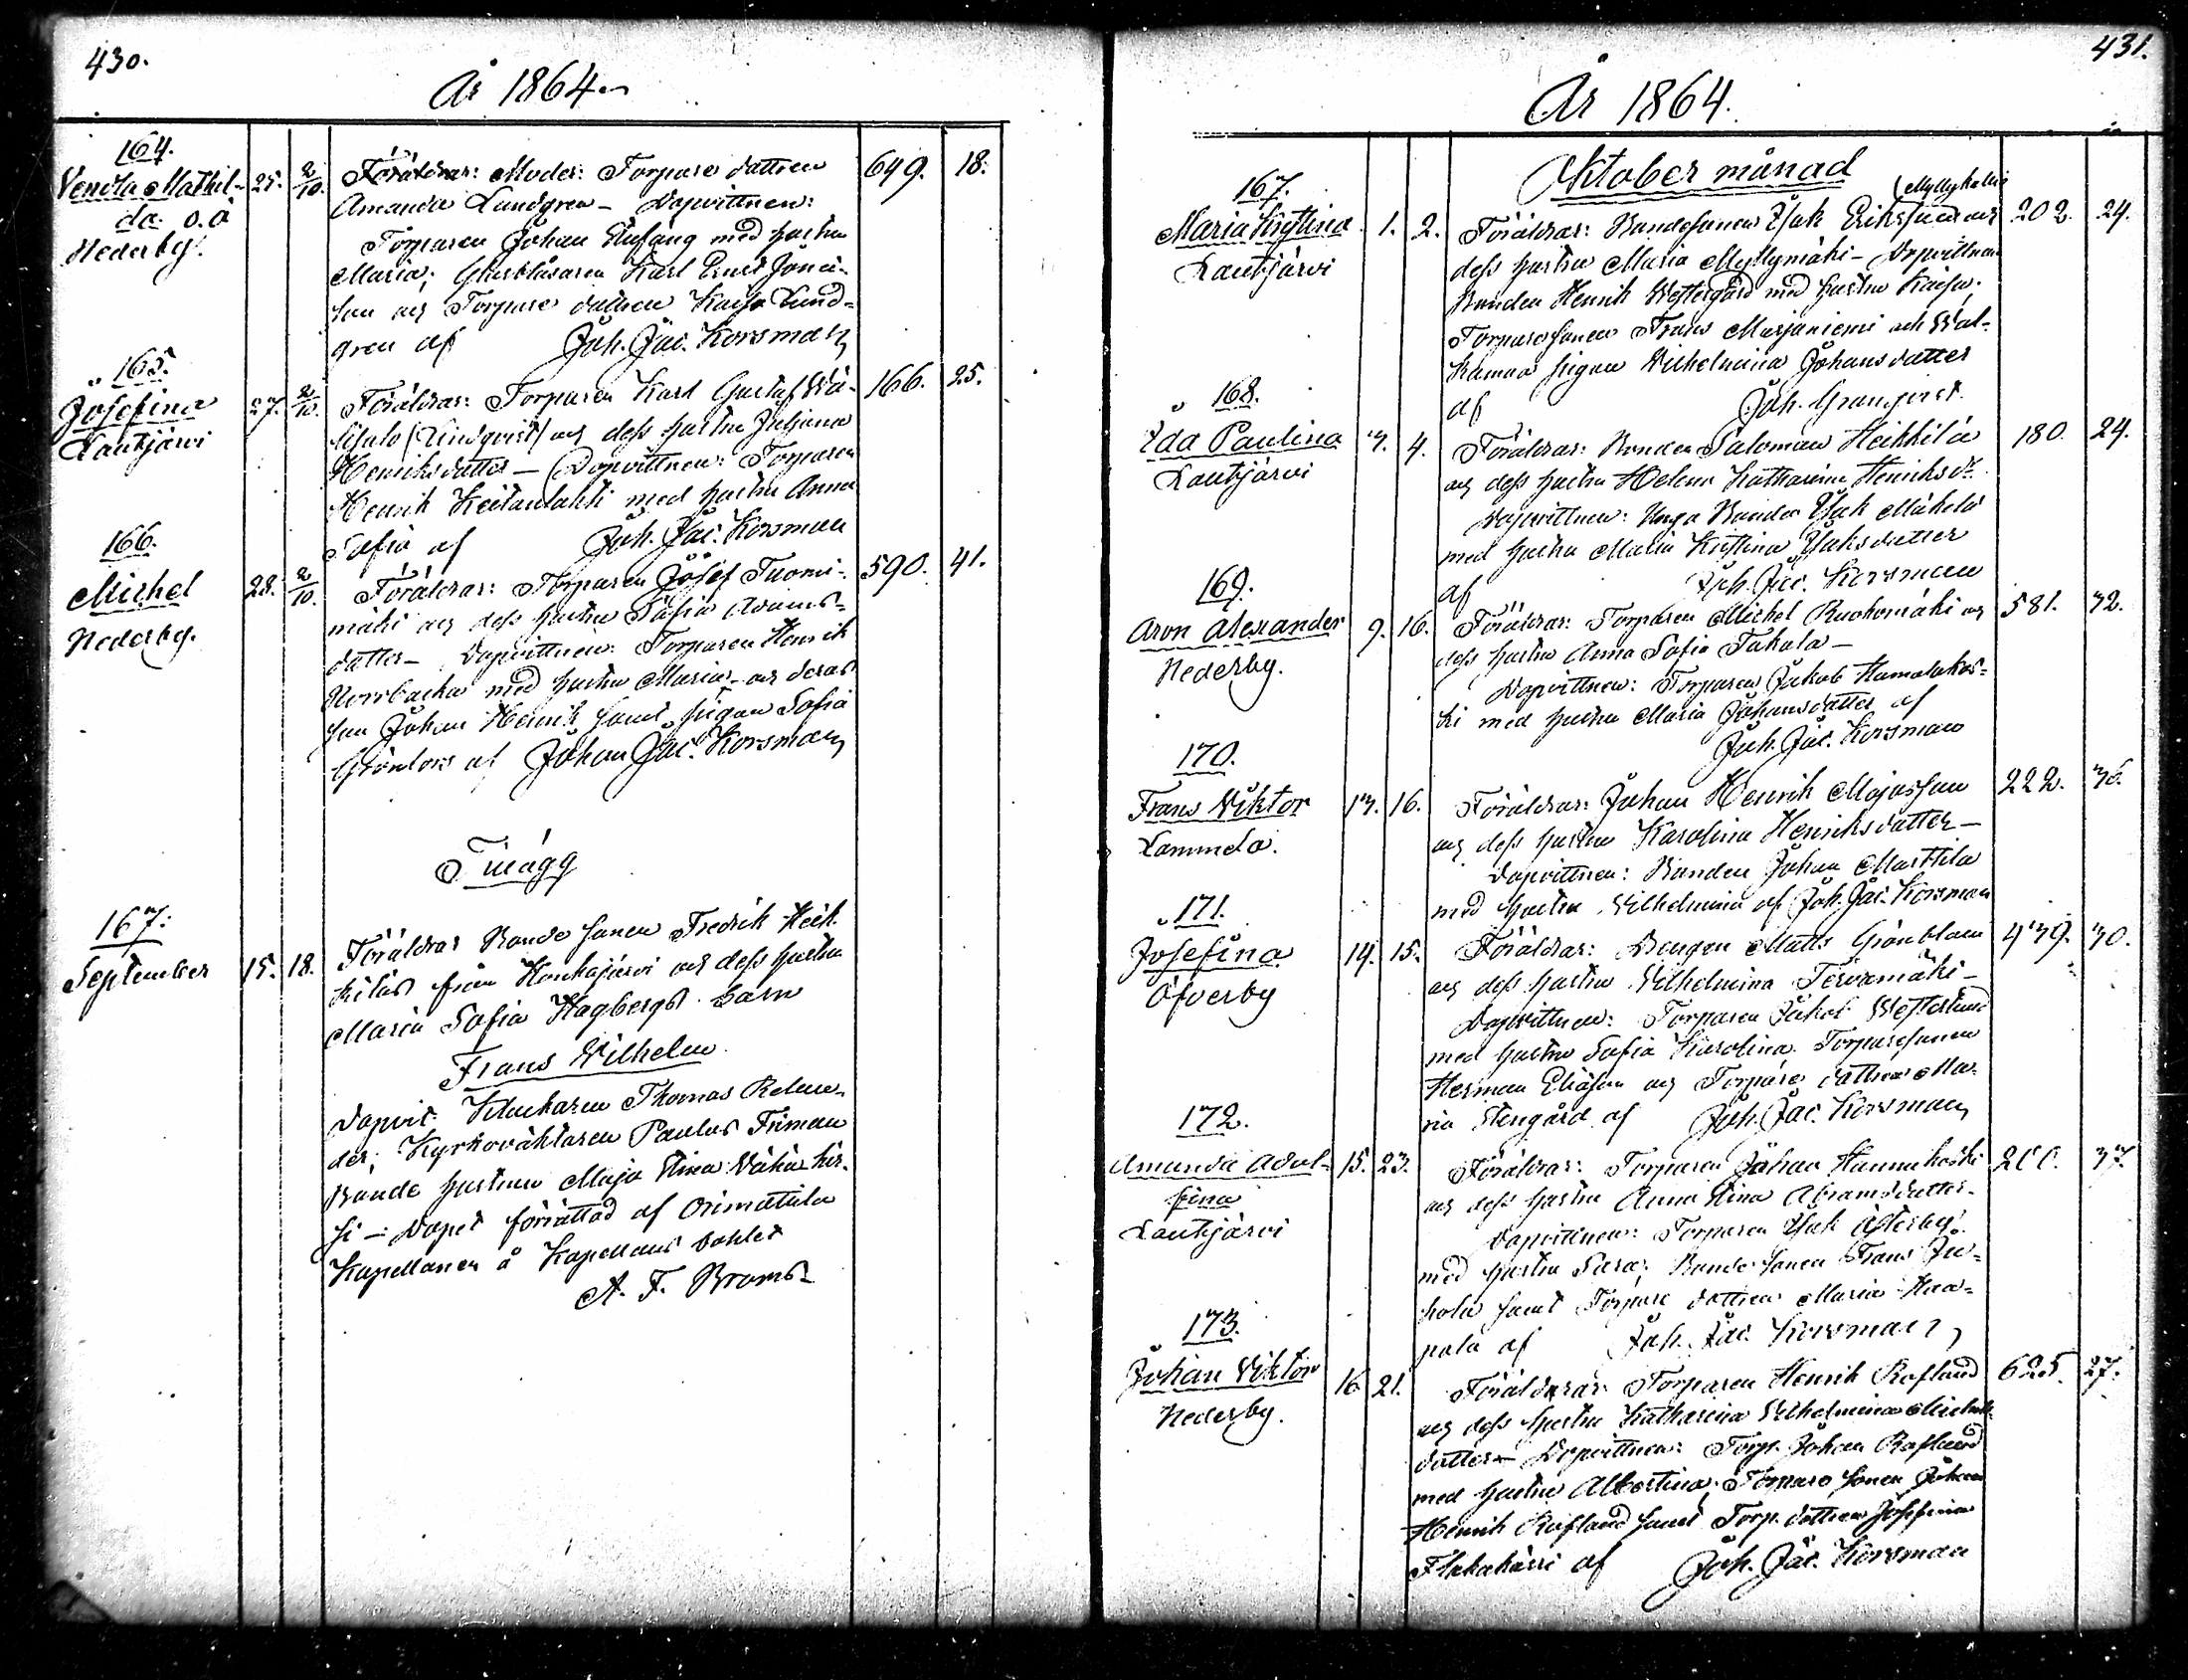 430.
År 1864.
164.
Vendla Mathil-
da. o.ä
Nederby.
25. 2/10.
Föräldrar: Moder: Torpare dottren
Amanda Lundgren – Dopvittnen:
Torparen Johan Stufäng med hustru
Maria; Glasblåsaren Karl Ernst Jona-
son och Torpare dottren Kajsa Lund-
gren af Joh. Jac. Korsman
649. 18.
165.
Josefina
Lautjärvi
27. 2/10.
Föräldrar: Torparen Karl Gustaf
(Lindqvist) och dess hustru Juliana
Henriksdotter – Dopvittnen: Torparen
Henrik Keitanlahti med hustru Anna
Sofia af Joh. Jac. Korsman
166. 25.
166.
Michel
Nederby.
28. 2/10.
Föräldrar: Torparen Josef Tuomi-
mäki och dess hustru Sofia Adams-
dotter – Dopvittnen: Torparen Henrik
Norrbacka med hustru Maria och deras
son Johan Henrik samt pigan Sofia
Grönfors af Johan Jac. Korsman
590. 41.
Tillägg
167.
September
15. 18.
Föräldrar Bonde sonen Fredrik Heik-
kiläs från Honkajärvi och dess hustru
Maria Sofia Hagbergs barn
Frans Wilhelm
Dopvit. Klockaren Thomas Relan-
der; Kyrkoväktaren Paulus Friman
Bonde hustrun Maja Stina Vähä hir-
si – Dopet förrättad af Orimattila
Kapellanen å Kapellans bohlet
A. F. Broms
431.
År 1864.
Oktober månad
167.
Maria Kristina
Lautjärvi
1. 2.
(Myllykallio
Föräldrar: Bondesonen Isak Eriksson och
dess hustru Maria Myllymäki – Dopvittnen
Bonden Henrik Westergård med hustru Kaisa.
Torparesonen Frans Marjaniemi och Wal-
kamaa pigan Wilhelmina Johansdotter
af Joh. Granqvist.
202. 24.
168.
Ida Paulina
Lautjärvi
3. 4.
Föräldrar: Bonden Salomon Heikkilä
och dess hustru Helena Katharina Henriksdr.
Dopvittnen: Unga Bonden Isak Mäkelä
med hustru Maria Kristina Isaksdotter
af Joh. Jac. Korsman
180. 24.
169.
Aron Alexander
Nederby.
9. 16.
Föräldrar: Torparen Michel Ruohomäki och
dess hustru Anna Sofia Takala –
Dopvittnen: Torparen Jakob Hamalakos-
ki med hustru Maria Johansdotter af
Joh. Jac. Korsman
581. 32.
170.
Frans Viktor
Lammela.
13. 16.
Föräldrar: Johan Henrik Majasson
och dess hustru Karolina Henriksdotter –
Dopvittnen: Bonden Johan Marttila
med hustru Wilhelmina af Joh. Jac. Korsman
222. 36.
171.
Josefina
Öfverby
14. 15.
Föräldrar: Drengen Matts Grönblom
och dess hustru Wilhelmina Tervamäki –
Dopvittnen: Torparen Jakob Westerlund
med hustru Sofia Karolina. Torparesonen
Herman Eliasson och Torpare dottren Ma-
ria Stengård af Joh. Jac. Korsman
439. 30.
172.
Amanda Adol-
fina
Lautjärvi
15. 23.
Föräldrar: Torparen Johan Hannukoski
och dess hustru Anna Stina Abramsdotter.
Dopvittnen: Torparen Isak Österby
med hustru Sara; Bonde sonen Frans Ju-
hola samt Torpare dottren Maria Haa-
pala af Joh. Jac. Korsman
200. 37.
173.
Johan Viktor
Nederby.
16. 21.
Föräldrar: Torparen Henrik Rafland
och dess hustru Katharina Wilhelmina Michels-
dotter – Dopvittnen: Torp. Johan Rafland
med hustru Albertina; Torpare sonen Johan
Henrik Rafland samt Torp. dottren Josefina
Flakakärri af Joh. Jac. Korsman
625. 27.